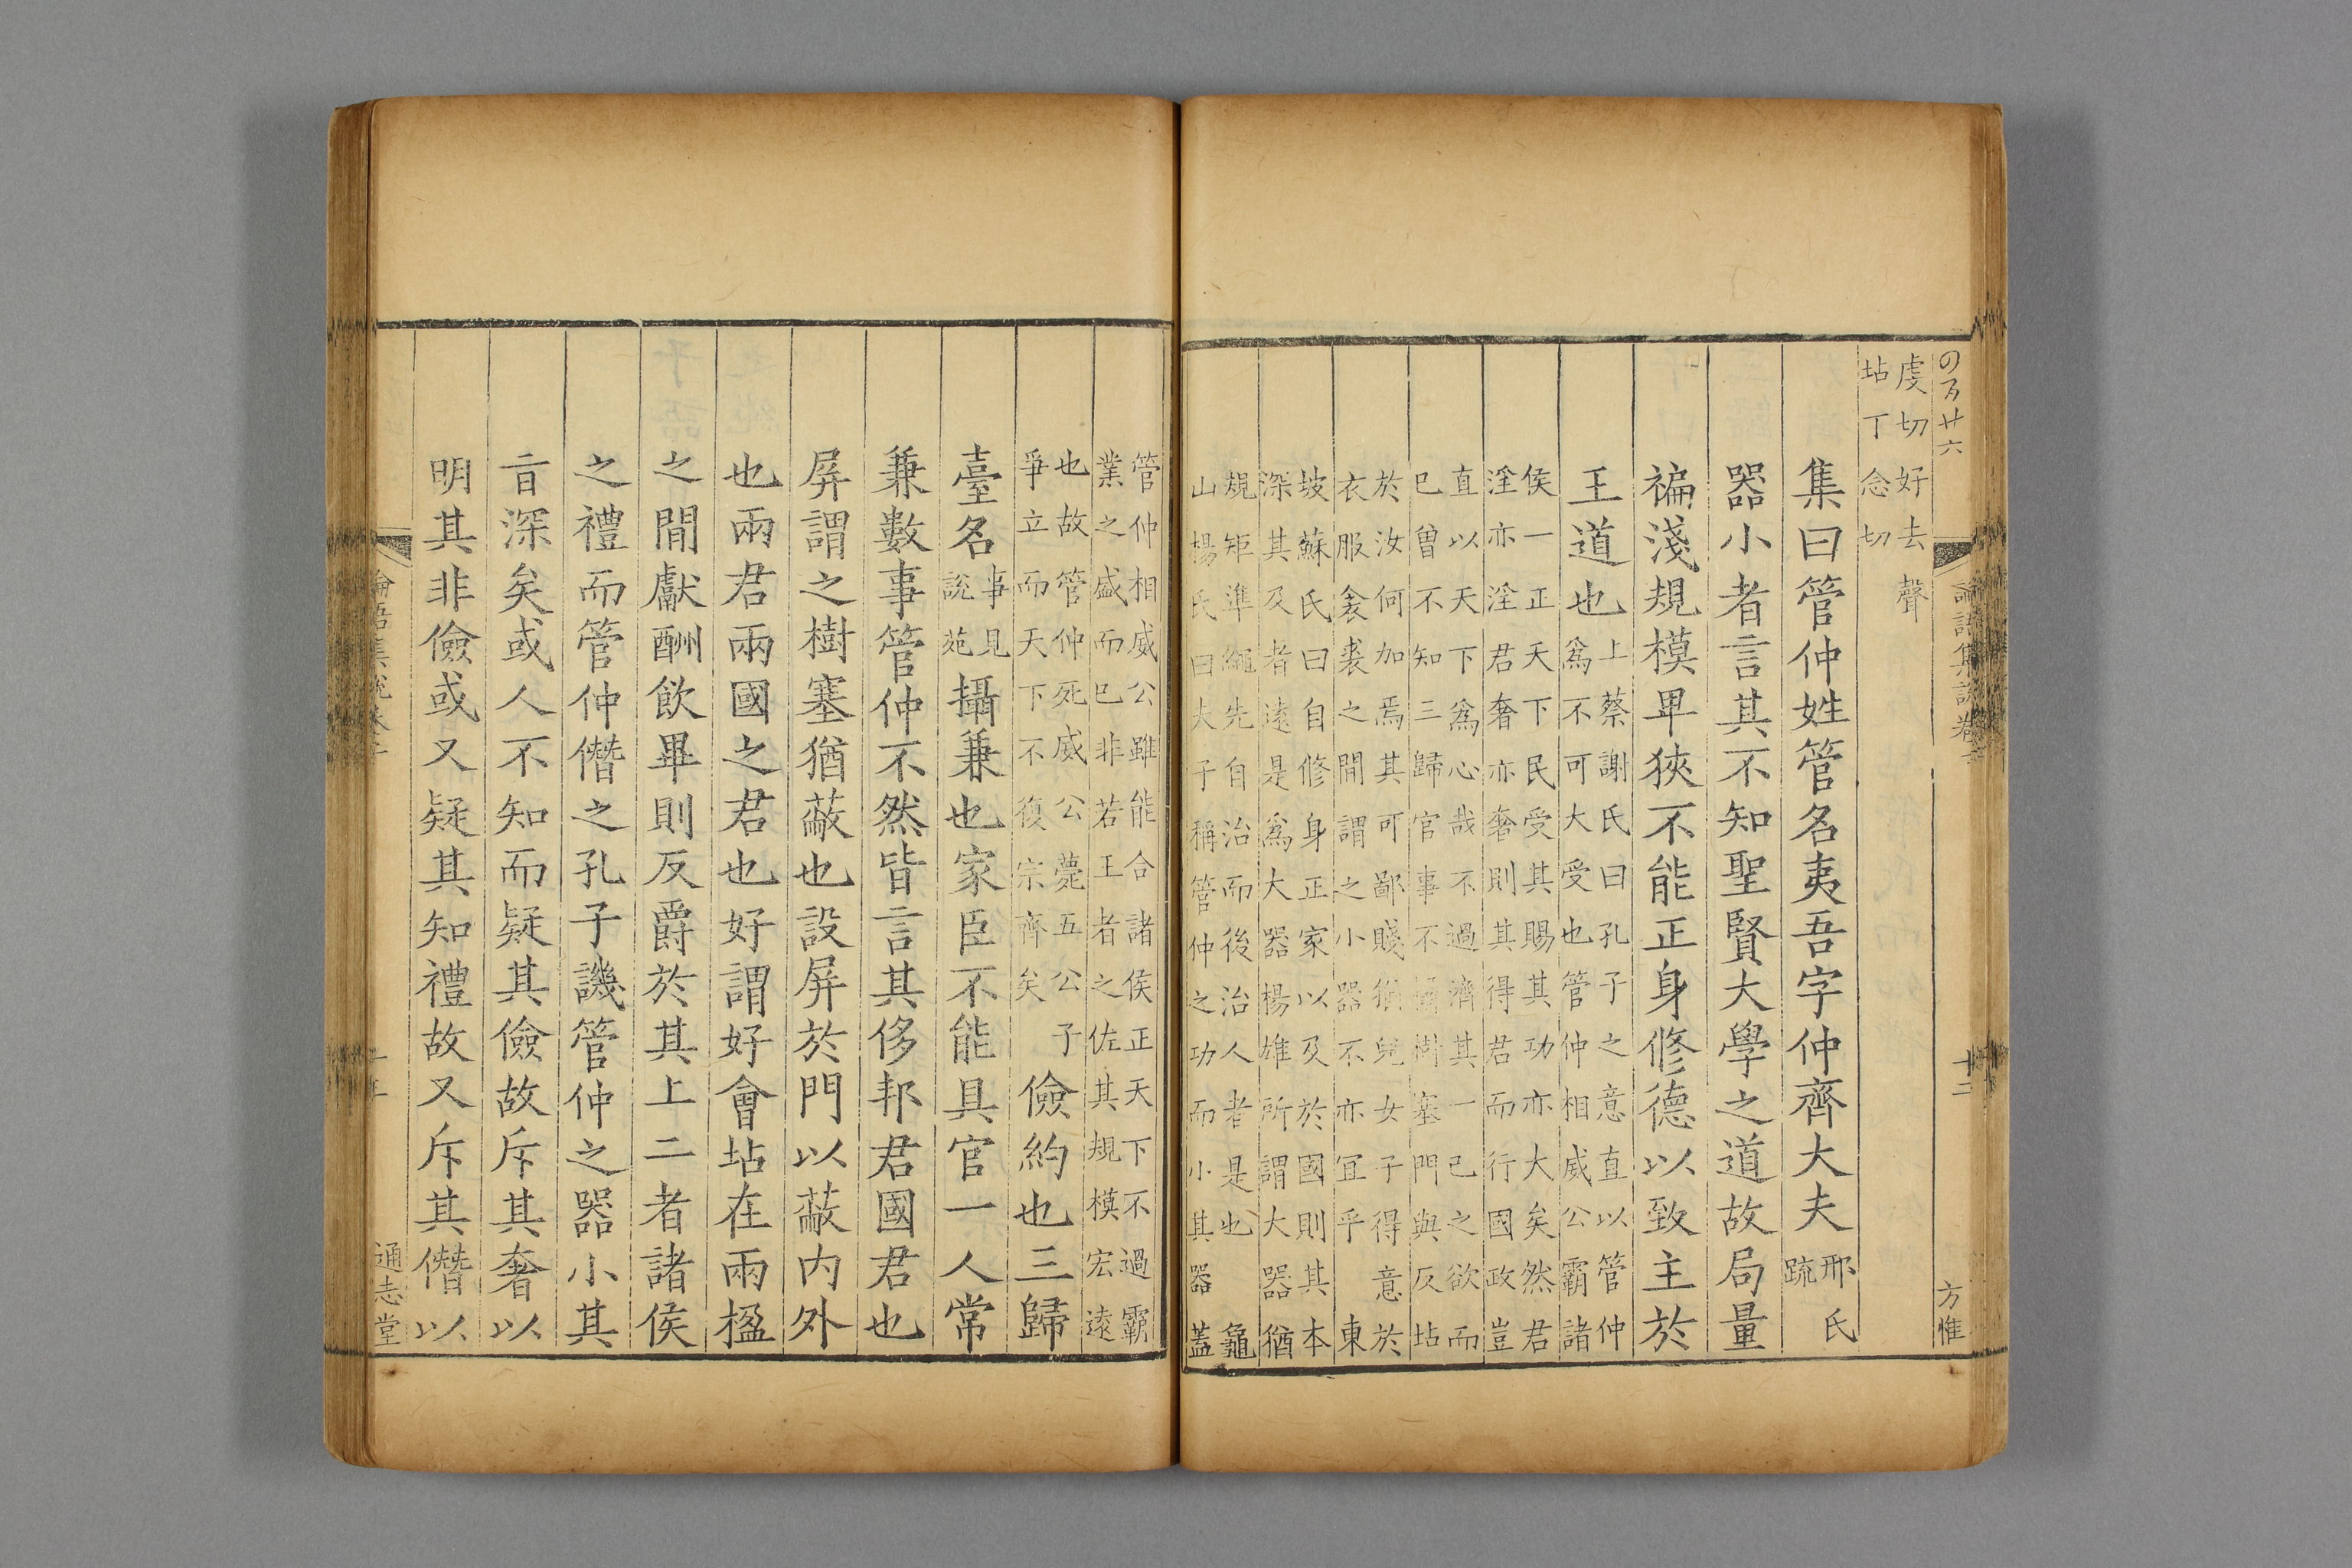 論語集說卷二
十二
方惟
虔切好去聲
坫丁念切
集曰管仲姓管名夷吾字仲齊大夫邢氏
疏
器小者言其不知聖賢大學之道故局量
褊淺規模卑狹不能正身修德以致主於
王道也上蔡謝氏曰孔子之意直以管仲
爲不可大受也管仲相威公霸諸
侯一正天下民受其賜其功亦大矣然君
淫亦淫君奢亦奢則其得君而行國政豈
直以天下爲心哉不過濟其一己之欲而
已曽不知三歸官事不攝樹塞門與反坫
於汝何加焉其可鄙賤猶兒女子得意於
衣服衾裘之間謂之小器不亦宜乎東
坡蘇氏曰自修身正家以及於國則其本
深其及者遠是爲大器楊雄所謂大器猶
規矩準繩先自治而後治人者是也龜
山楊氏曰夫子稱管仲之功而小其器蓋
管仲相威公雖能合諸侯正天下不過霸
業之盛而已非若王者之佐其規模宏遠
也故管仲死威公薨五公子
爭立而天下不復宗齊矣儉約也三歸
臺名事見
說苑攝兼也家臣不能具官一人常
兼數事管仲不然皆言其侈邦君國君也
屏謂之樹塞猶蔽也設屏於門以蔽内外
也兩君兩國之君也好謂好會坫在兩楹
之間獻酬飲畢則反爵於其上二者諸侯
之禮而管仲僭之孔子譏管仲之器小其
㫖深矣或人不知而疑其儉故斥其奢以
明其非儉或又疑其知禮故又斥其僭以
論語集說卷二
通志堂